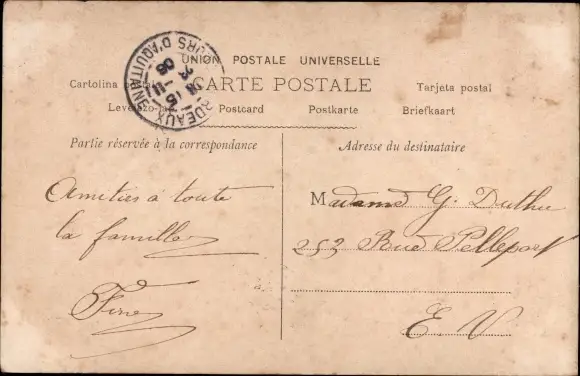 UNION POSTALE UNIVERSELLE
CARTE POSTALE
Cartolina postale Tarjeta postal
Postcard Postkarte Briefkaart
BORDEAUX COURS D'AQUITAINE
Partie réservée à la correspondance
Amitiés à toute
la famille
Adresse du destinataire
Madame G. Duthu
253 Rue Pelleport
à
E. V